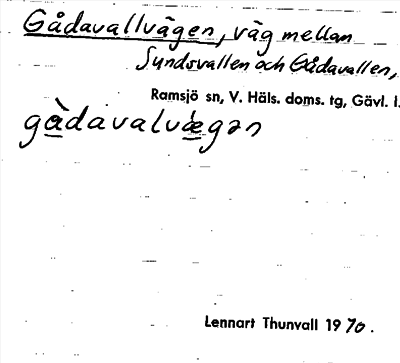 Gådavallvägen, väg mellan
Sundsvallen och Gådavallen,
Ramsjö sn, V. Häls. doms. tg, Gävl. l.
gàdavalvægən
Lennart Thunvall 1970.